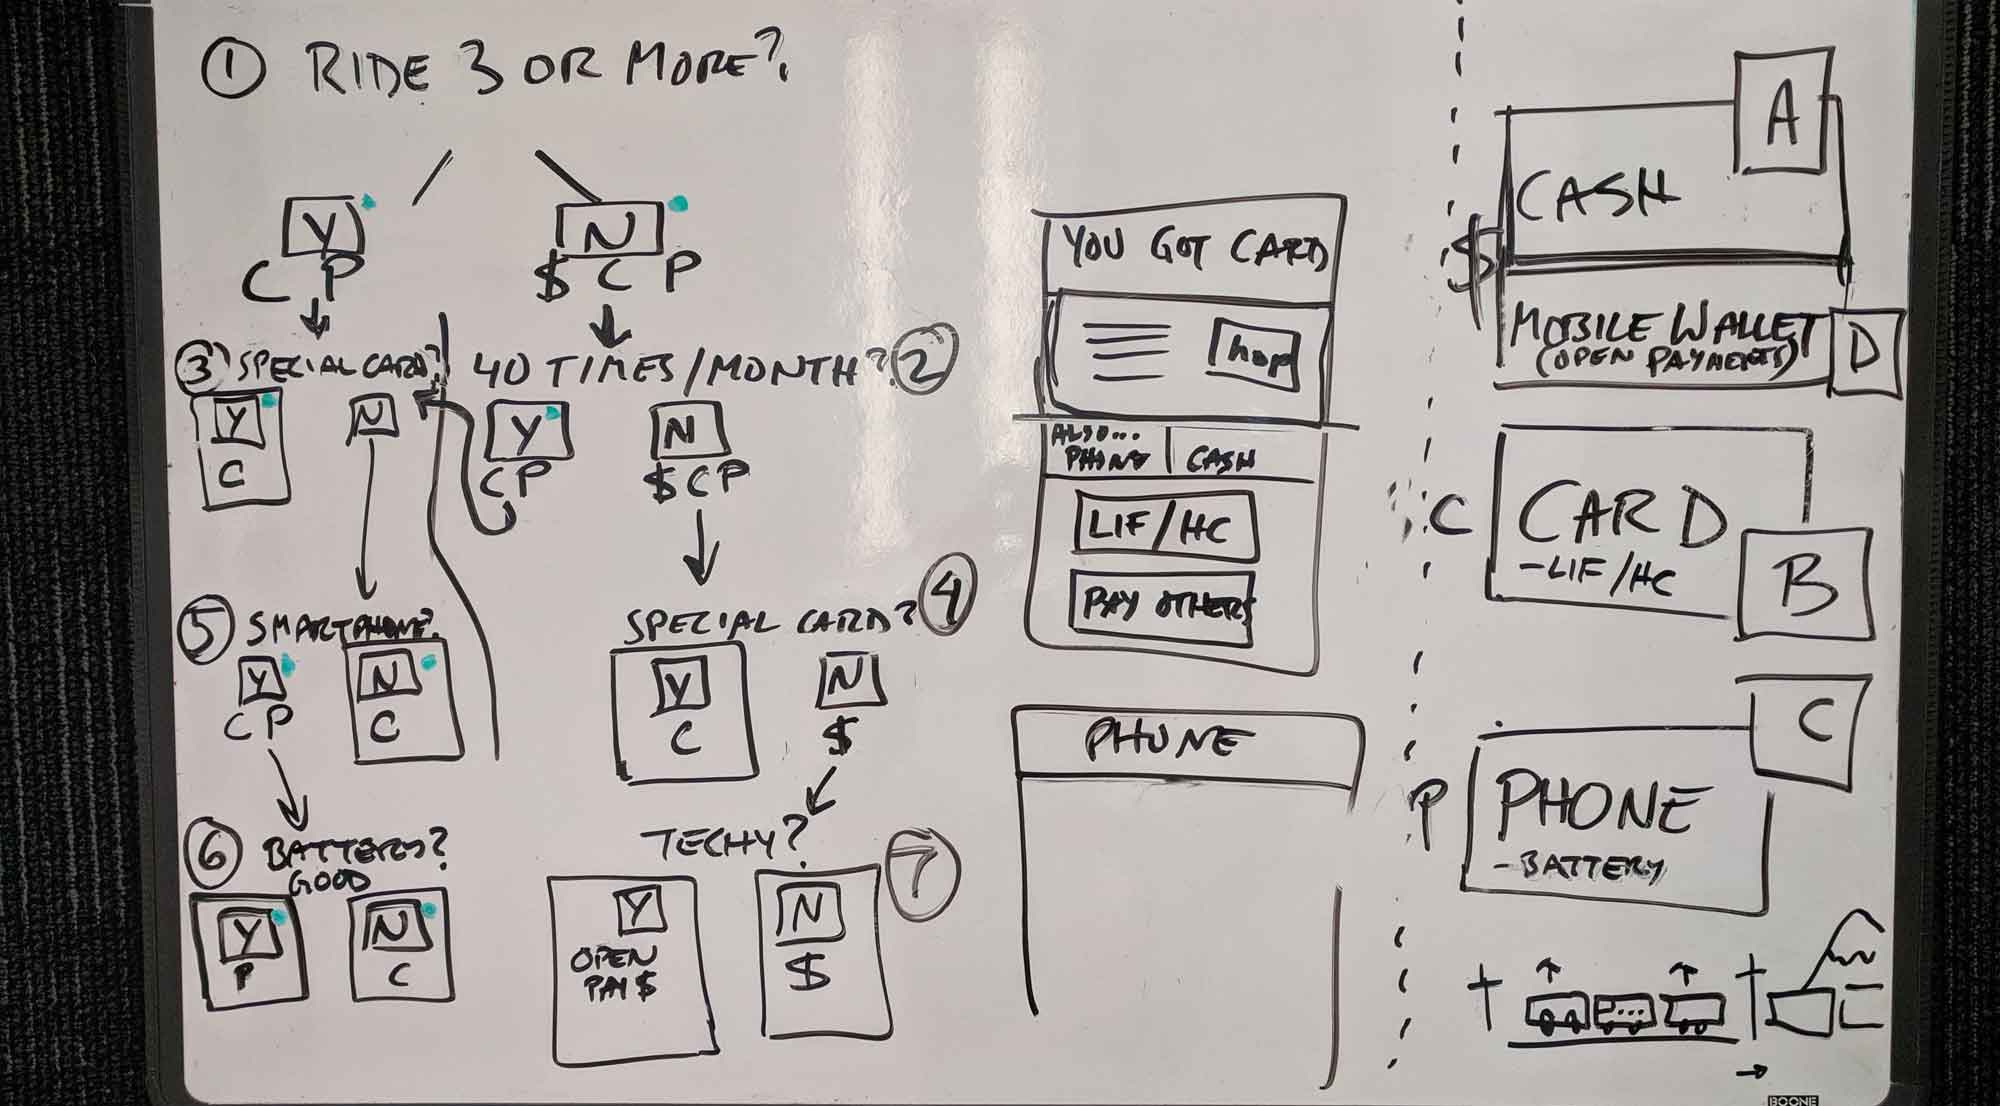 ① RIDE 3 OR MORE?
Y
N
C P
$ C P
③ SPECIAL CARD?
40 TIMES/MONTH? ②
Y
N
C
Y
N
C P
$ C P
⑤ SMARTPHONE?
SPECIAL CARD? ④
Y
N
C P
C
Y
N
C
$
⑥ BATTERY?
GOOD
TECHY? ⑦
Y
N
P
C
Y
N
OPEN
PAY $
$
YOU GOT CARD
hop
ALSO...
PHONE
CASH
LIF/HC
PAY OTHERS
PHONE
A
CASH
$
MOBILE WALLET
(OPEN PAYMENTS)
D
C
CARD
-LIF/HC
B
C
P
PHONE
-BATTERY
BOONE